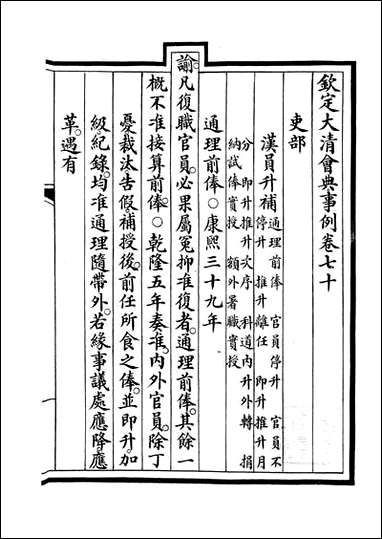 欽定大清會典事例卷七十
吏部
漢員升補
通理前俸 官員停升 官員不
停升 推升離任 即升推升月
分 即升推升次序 科道內升外轉 捐
納試俸實授 額外署職實授
通理前俸○康熙三十九年
諭。凡復職官員。必果屬冤抑准復者。通理前俸。其餘一
概不准接算前俸。○乾隆五年奏准。內外官員。除丁
憂裁汰告假補授後。前任所食之俸。並即升。加
級紀錄。均准通理隨帶外。若緣事議處應降應
革。遇有